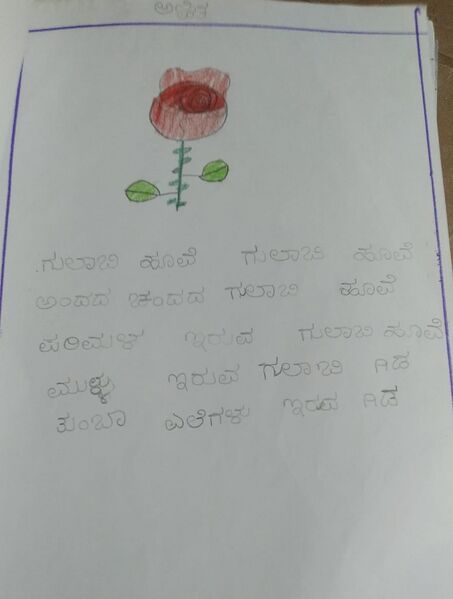 ಅಜಿತ
.ಗುಲಾಬಿ ಹೂವೆ ಗುಲಾಬಿ ಹೂವೆ
ಅಂದದ ಚಂದದ ಗುಲಾಬಿ ಹೂವೆ
ಪರಿಮಳ ಇರುವ ಗುಲಾಬಿ ಹೂವೆ
ಮುಳ್ಳು ಇರುವ ಗುಲಾಬಿ ಗಿಡ
ತುಂಬಾ ಎಲೆಗಳು ಇರುವ ಗಿಡ